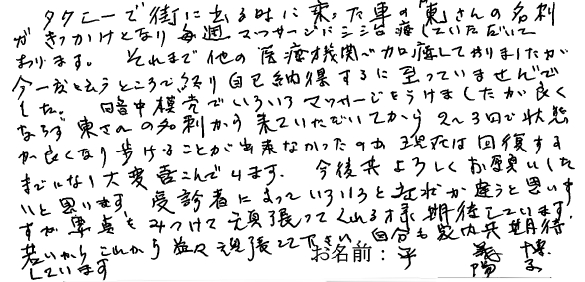 タクシーで街に出る時に乗った車の東さんの名刺
がきっかけとなり毎週マッサージに
おります。それまで他の医療機関へ加療しておりましたが
今一歩と云うところで終り自己納得するに至っていませんで
した。暗中模索でいろいろマッサージをうけましたが良く
ならず東さんの名刺から来ていただいてから2〜3回で状態
が良くなり歩けることが出来なかったのが現在は回復する
までになり大変喜こんでいます。今後共よろしくお願いした
いと思います。受診者によっていろいろと症状が違うと思いま
すが要点をみつけて頑張ってくれる様期待しています。
若いからこれから益々頑張って下さい。自分も家内共期待
しています お名前：平